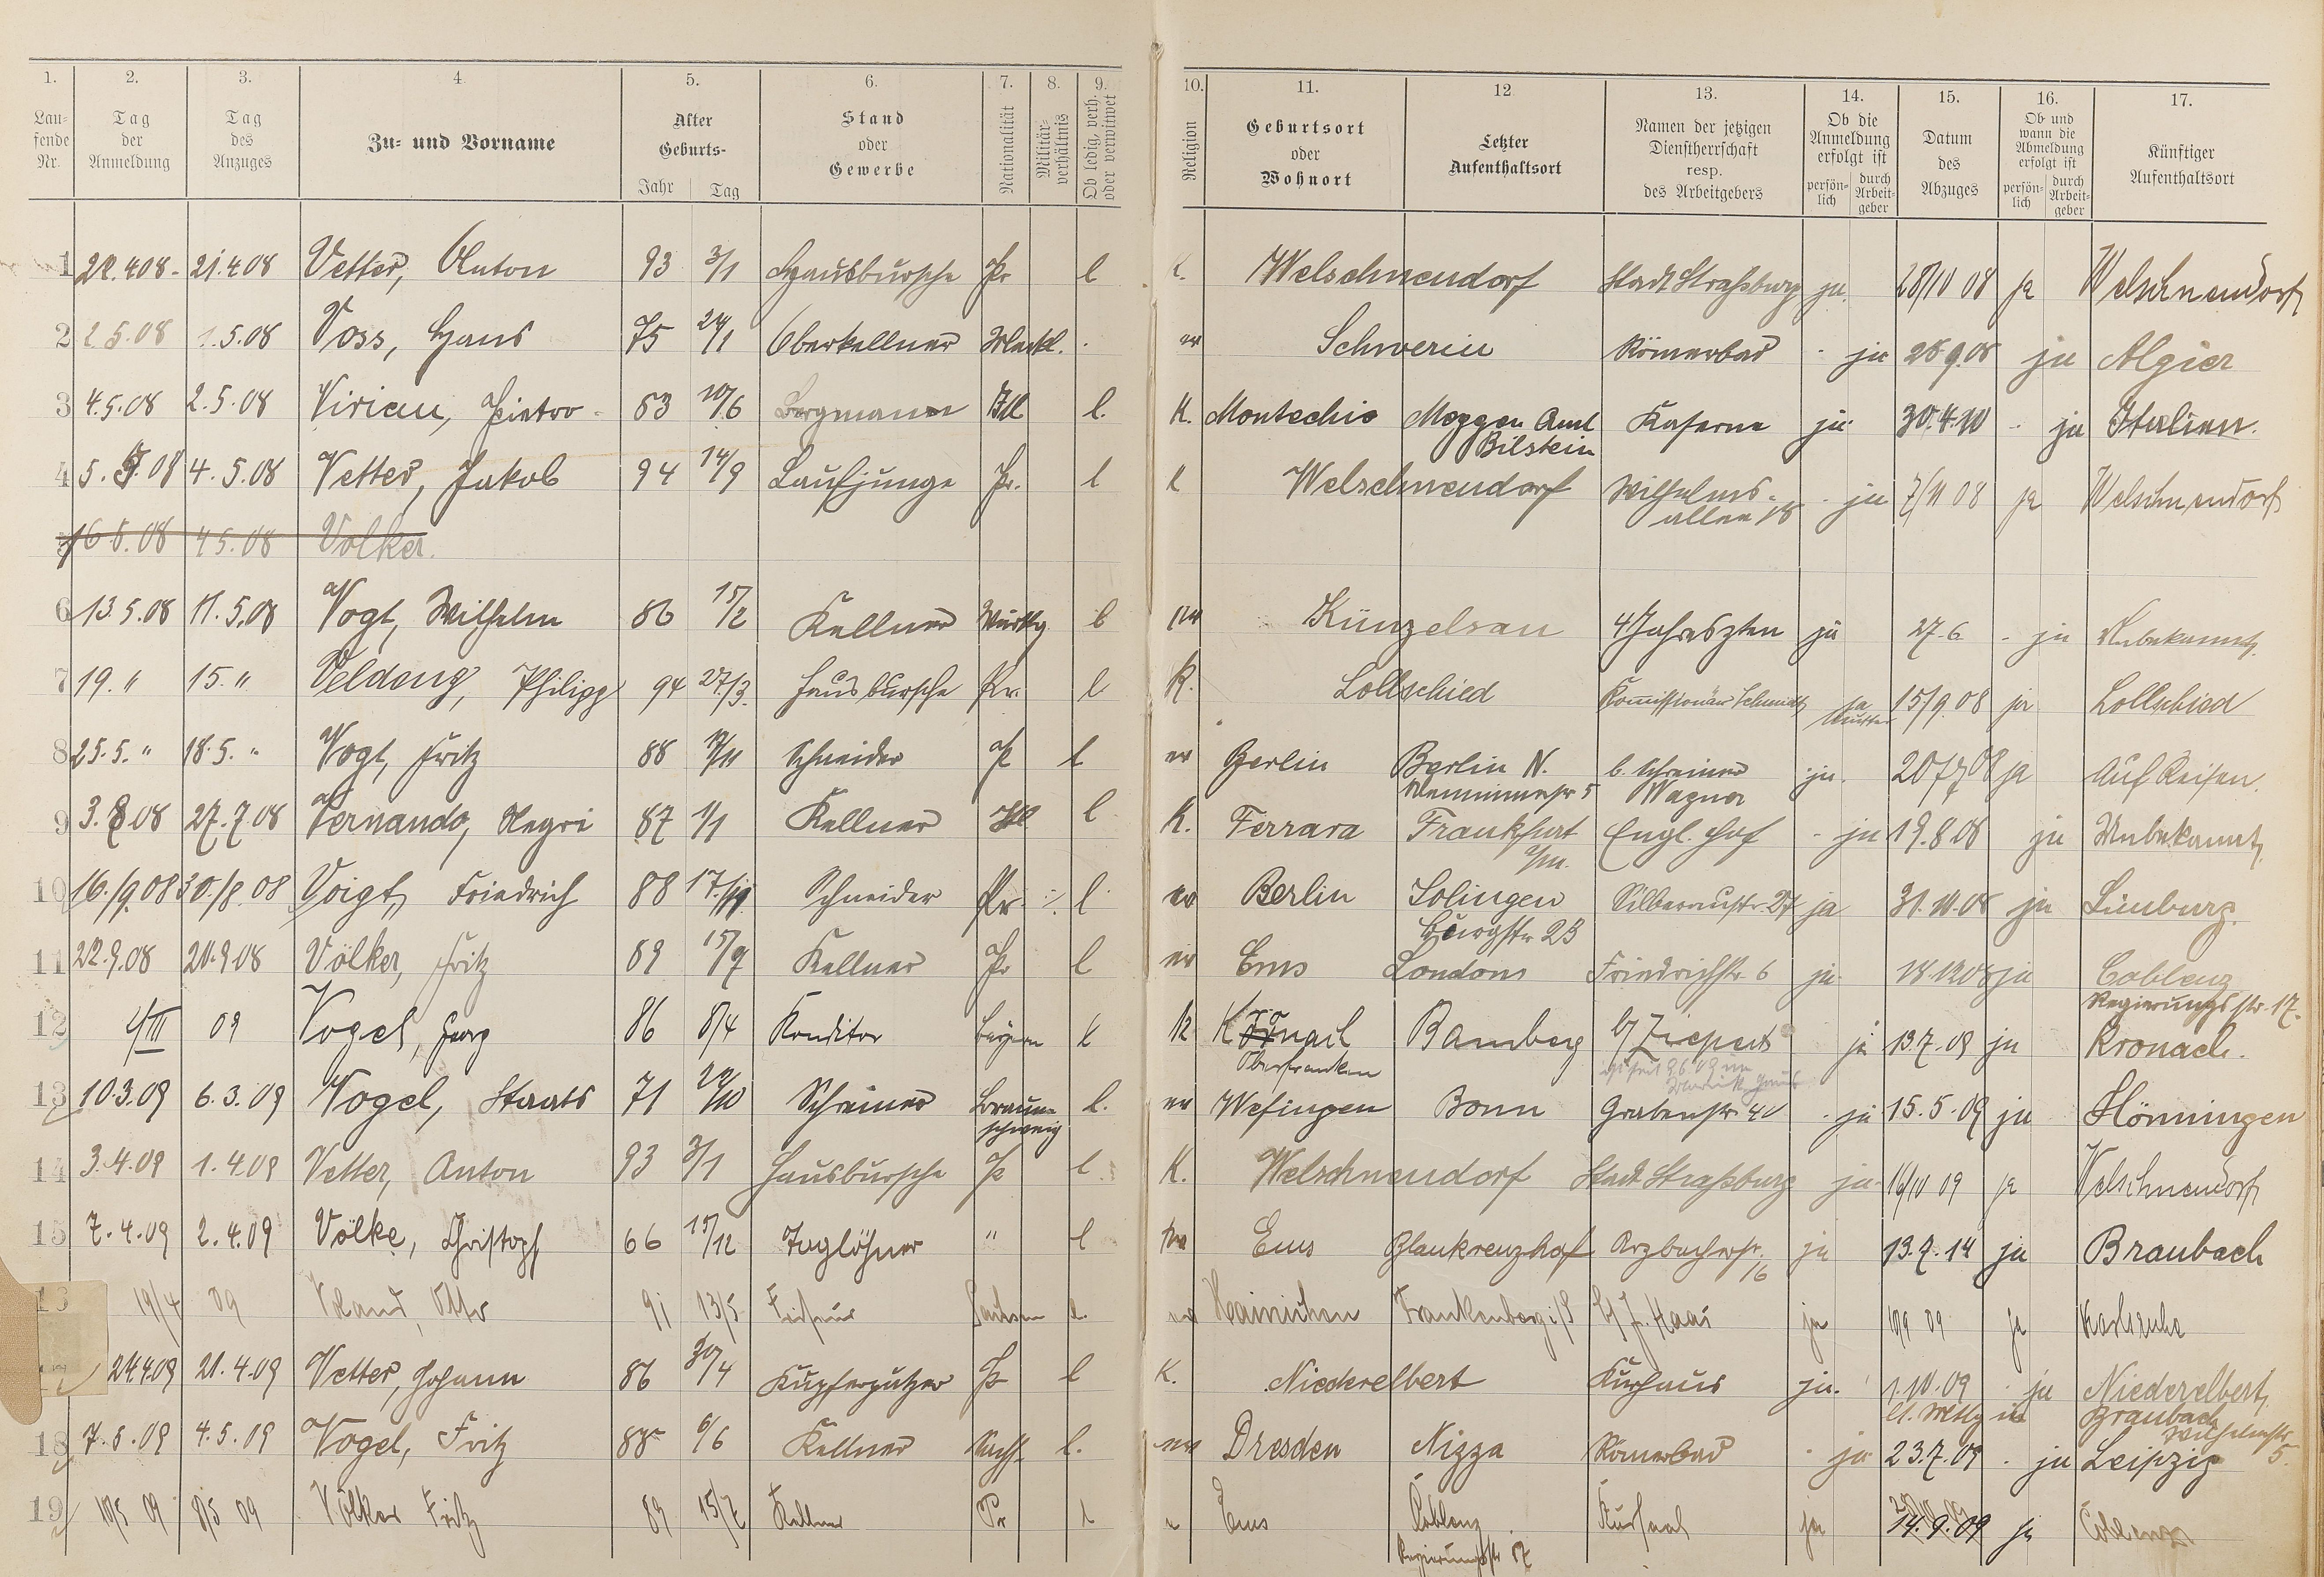 1. 2. 3. 4. 5. 6. 7. 8. 9. 10. 11. 12. 13. 14. 15. 16. 17.
Laufende Nr.
Tag der Anmeldung
Tag des Anzuges
Zu- und Vorname
Alter Geburts- Jahr Tag
Stand oder Gewerbe
Nationalität
Militärverhältnis
Ob ledig, verh. oder verwitwet
Religion
Geburtsort oder Wohnort
Letzter Aufenthaltsort
Namen der jetzigen Dienstherrschaft resp. des Arbeitgebers
Ob die Anmeldung erfolgt ist persönlich durch Arbeitgeber
Datum des Abzuges
Ob und wann die Abmeldung erfolgt ist persönlich durch Arbeitgeber
Künftiger Aufenthaltsort
1 22.4 08 21.4 08 Vetter, Anton 93 3/1 Hausbursche Pr l K. Welschneudorf Stadt Straßburg ja 28/10 08 ja Welschneudorf
2 2.5.08 1.5.08 Voss, Hans 75 24/1 Oberkellner Meckl. ev Schwerin Römerbad ja 28.9.08 ja Algier
3 4.5.08 2.5.08 Pietro 83 10/6 Bergmann Itl l. K. Montechio Meggen Amt Bilstein Kaserne ja 30.4.10 ja Italien.
4 5.5.08 4.5.08 Vetter, Jakob 94 14/9 Laufjunge Pr. l K Welschneudorf Wilhelmsallee 18 ja 7/11 08 ja Welschneudorf
5 6.5.08 4 5.08 Völker.
6 13.5.08 11.5.08 Vogt, Wilhelm 86 15/2 Kellner Württg l ev Künzelsau 4 Jahreszten ja 27.6 ja Unbekannt.
7 19. " 15. " Veldeng, Philipp 94 27./3. Hausbursche Pr. l K. Lollschied Kommissionär Schmidt ja 15/9 08 ja Lollschied
8 25.5. " 18.5. " Vogt, Fritz 88 Schneider P l ev Berlin Berlin N. 5 b. Schreiner Wagner ja. 20 7 08 ja Auf Reisen.
9 3.8.08 27.7.08 Vernando, Negri 87 1/1 Kellner Itl l K. Ferrara Frankfurt a/M. Engl. Hof ja 19.8.08 ja Unbekannt
10 16./9.08 30./8.08 Voigt, Friedrich 88 Schneider Pr. ./. l ev Berlin Solingen Burgstr 23 Silberaustr. 27 ja 31.10.08 ja Limburg.
11 22.9.08 20.9.08 Völker, Fritz 89 15/7 Kellner Pr l ev Ems London Friedrichstr 6 ja 18 12 08 ja Coblenz Regierungsstr. 17.
12 1/III 09 Vogel, Georg 86 8/4 Konditor Bayern l K Oberfranken Bamberg b/ Ziepert ja 13.7.09 ja Kronach.
13 10.3.09 6.3.09 Vogel, Staats 71 Schreiner Braunschweig l. ev Wefingen Bonn Grabenstr 40 ja 15.5.09 ja Hönningen
14 3.4.09 1.4.09 Vetter, Anton 93 3/1 Hausbursche P l K. Welschneudorf Stadt Straßburg ja 16/10 09 ja Welschneudorf
15 7.4.09 2.4.09 Völke, Christoph 66 15/12 Taglöhner " l ev Ems Blaukreuzhof Arzbacherstr. 16 ja 13.7.14 ja Braubach
19/4 09 Otto 91 13/5 Friseur Sachsen l ev Hainichen Frankenberg i/S b/ J. Haas ja 09 ja Karlsruhe
24.4.09 21.4.09 Vetter, Johann 86 30/4 Kupferputzer Pr l K. Niederelbert Kurhaus ja. 1.10.09 ja Niederelbert
18 7.5.09 4.5.09 Vogel, Fritz 88 6/6 Kellner Sachs l. ev Dresden Nizza Römerbad ja 23.7.09 ja Leipzig
Braubach Wilhelmstr 5.
19 10/5 09 8/5 09 Völker Fritz 89 15/7 Kellner Pr l Ems Coblenz Regierungsstr 17 Kursaal ja 14.9.09 ja Coblenz